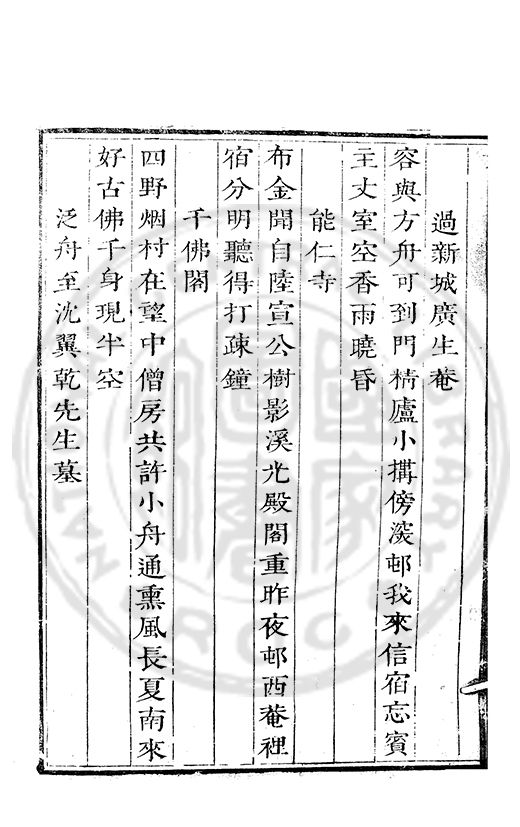 過新城廣生菴
容與方舟可到門精廬小搆傍深邨我來信宿忘賓
主丈室空香雨曉昏
能仁寺
布金聞自陸宣公樹影溪光殿閣重昨夜邨西菴裡
宿分明聽得打疎鐘
千佛閣
四野烟村在望中僧房共許小舟通熏風長夏南來
好古佛千身現半空
泛舟至沈翼乾先生墓